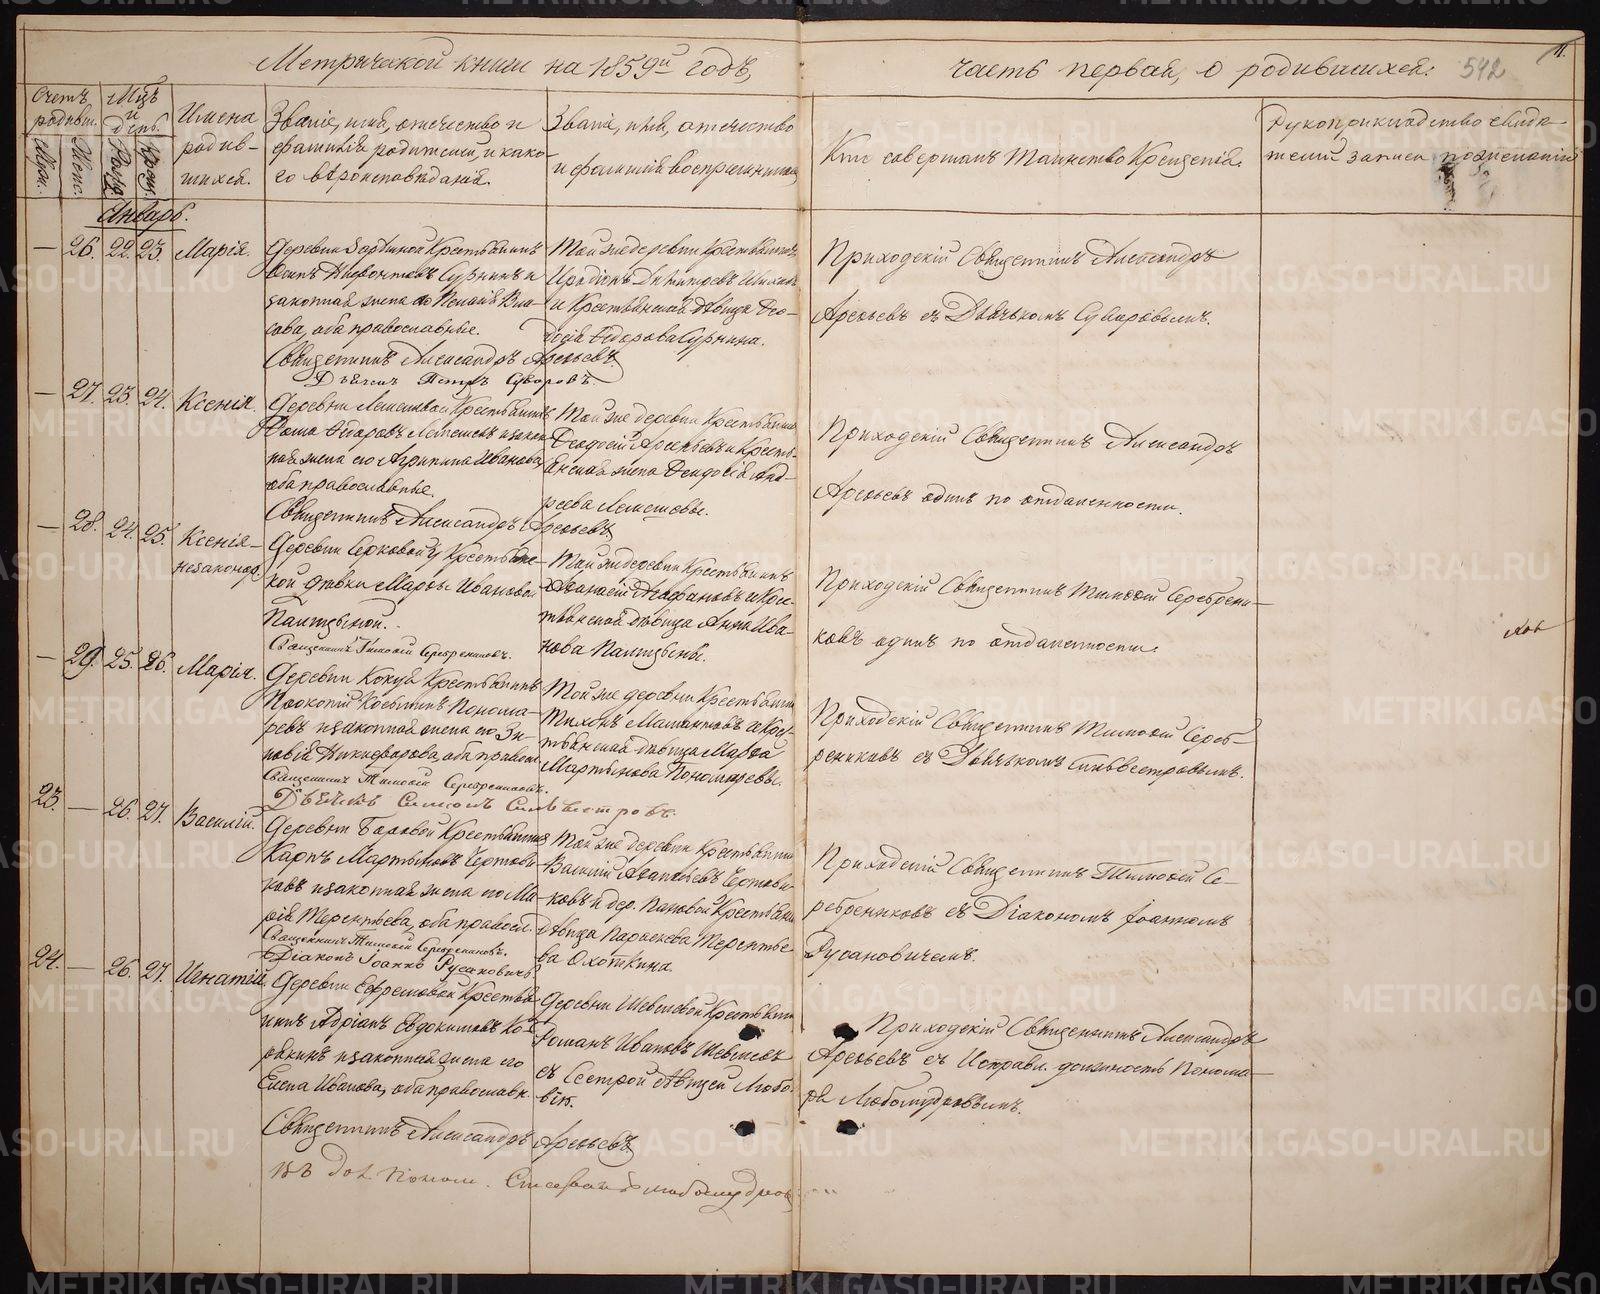 Метрической книги на 1859й годъ,
часть первая, о родившихся.
542
11.
Счетъ родивш.
Муж.
Женс.
Мцъ и день.
Рожд.
Крещ.
Имена родив-
шихся.
Званіе, имя, отечество и
фамилія родителей, и како-
го вѣроисповѣданія.
Званіе, имя, отечество
и фамилія воспріемниковъ
Кто совершалъ Таинство Крещенія.
Рукоприкладство свидѣ-
телей записи по желанію
Январь.
— 26. 22. 23. Марія.
Деревни Крестьянинъ
законная жена его
сова, оба православные.
Священникъ Александръ Арефьевъ
Дьячекъ Петръ Суворовъ.
Той же деревни Крестьянинъ
и Крестьянская дѣвица Ѳео-
досія Ѳедорова Сурнина.
Приходскій Священникъ Александръ
Арефьевъ съ Дьячькомъ Суворовымъ.
— 27. 23. 24. Ксенія.
Деревни Лемешевой Крестьянинъ
Ѳома Ѳедоровъ Лемешевъ и закон-
ная жена его Агрипина Иванова,
оба православные.
Священникъ Александръ Арефьевъ
Той же деревни Крестьянинъ
Ѳеодосій Арефьевъ и Кресть-
янская жена Ѳеодосія Анд-
реева Лемешевы.
Приходскій Священникъ Александръ
Арефьевъ одинъ по отдаленности.
— 28. 24. 25. Ксенія —
незаконор.
Деревни Серковой Крестьянс-
кой дѣвки Марѳы Ивановой
Паницыной.
Священникъ Тимоѳей Серебрениковъ.
Той же деревни Крестьянинъ
Аѳанасій Агафоновъ и Крес-
тьянская дѣвица Анна Ива-
нова Паницыны.
Приходскій Священникъ Тимоѳей Серебрени-
ковъ одинъ по отдаленности.
— 29. 25. 26. Марія.
Деревни Кокуя Крестьянинъ
Прокопій Косьминъ Понома-
ревъ и законная жена его Зи-
новія Никифорова, оба правосл.
Священникъ Тимоѳей Серебрениковъ.
Дьячекъ Симонъ Сильвестровъ.
Той же деревни Крестьянинъ
Тихонъ Мамонтовъ и Крес-
тьянская дѣвица Марѳа
Мартынова Пономаревы.
Приходскій Священникъ Тимоѳей Сереб-
рениковъ съ Дьячькомъ Сильвестровымъ.
23. — 26. 27. Василій.
Деревни Боровой Крестьянинъ
Карпъ Мартыновъ Чертови-
ковъ и законная жена его Ма-
рія Терентьева, оба правосл.
Священникъ Тимоѳей Серебрениковъ.
Діаконъ Іоаннъ Русановичъ
Той же деревни Крестьянинъ
Василій Чертови-
ковъ и дер. Пановой Крестьянс.
дѣвица Параскева Терентье-
ва Охоткина.
Приходскій Священникъ Тимоѳей Се-
ребрениковъ съ Діакономъ Іоанномъ
Русановичемъ.
24. — 26. 27. Игнатій.
Деревни Ефремовой Крестья-
нинъ Адріанъ Евдокимовъ Ко-
ркинъ и законная жена его
Елена Иванова, оба православн.
Священникъ Александръ Арефьевъ
Деревни Шевелевой Крестьянинъ
Романъ Ивановъ Шевелевъ
съ Сестрой дѣвицей Любо-
вію.
Приходскій Священникъ Александръ
Арефьевъ съ Исправл. должность Понома-
ря Любомудровымъ.